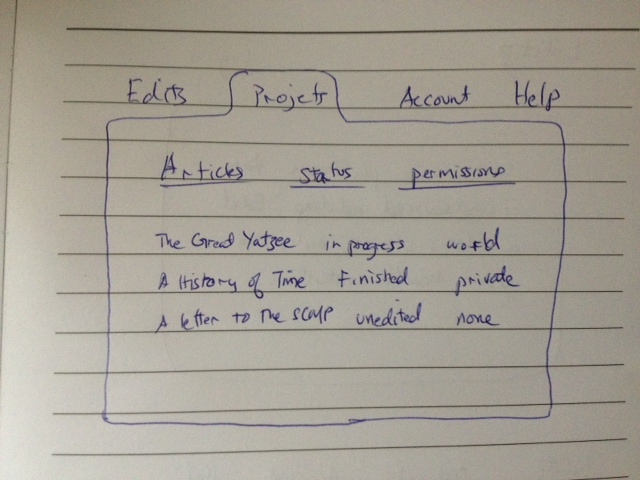 Edits Projets Account Help
Articles status permissions
The Great Yatzee in progress world
A History of Time Finished private
A letter to The SCMP unedited none